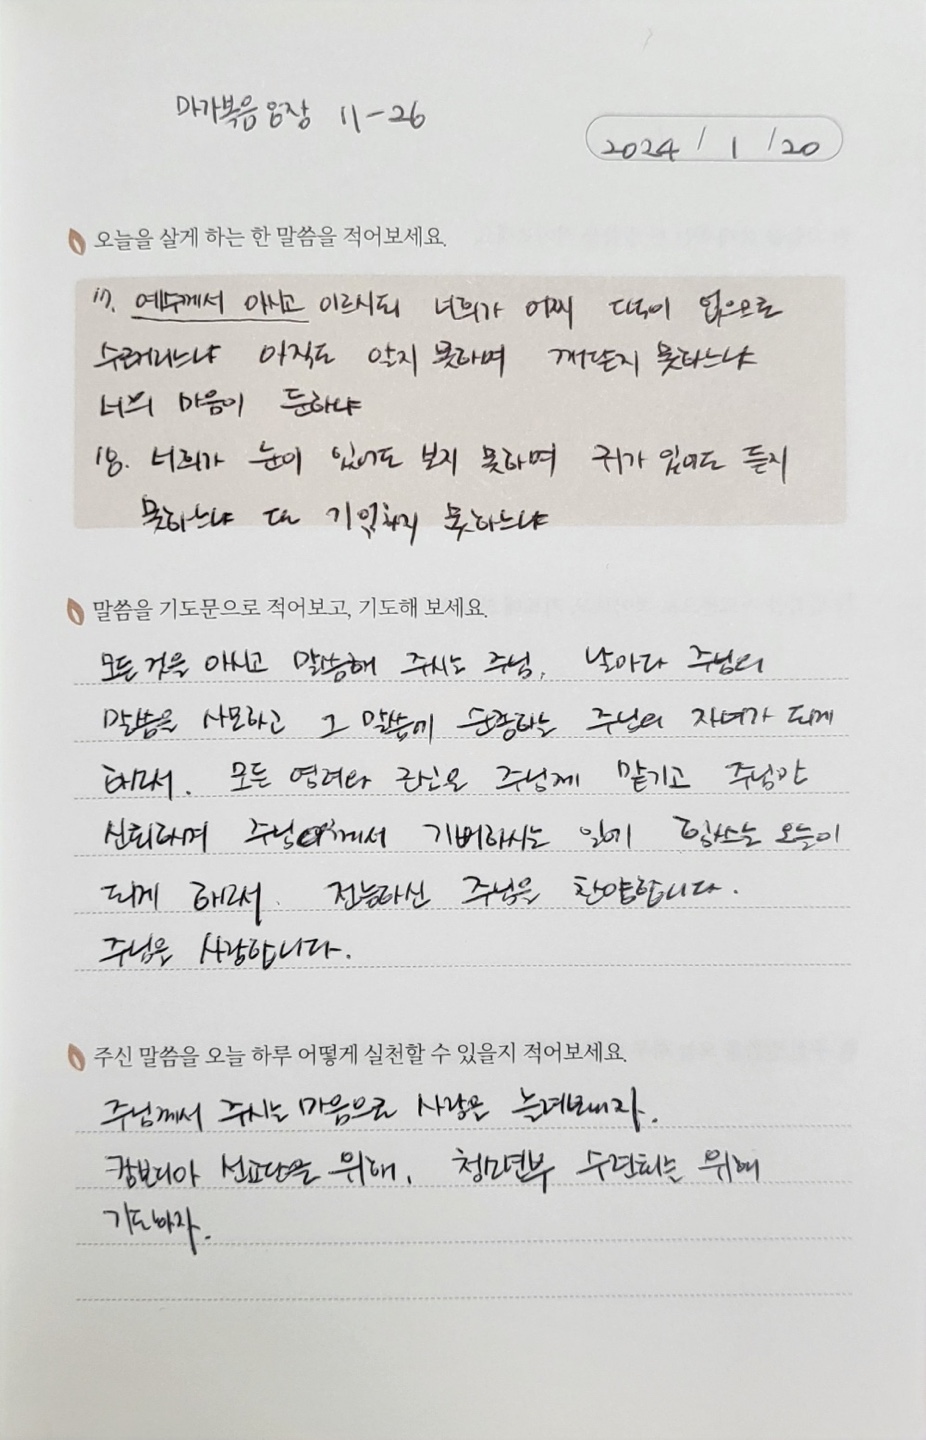 마가복음 8장 11-26
2024 / 1 / 20
오늘을 살게 하는 한 말씀을 적어보세요.
17. 예수께서 아시고 이르시되 너희가 어찌 떡이 없으므로
수군거리느냐 아직도 알지 못하며 깨닫지 못하느냐
너희 마음이 둔하냐
18. 너희가 눈이 있어도 보지 못하며 귀가 있어도 듣지
못하느냐 또 기억하지 못하느냐
말씀을 기도문으로 적어보고, 기도해 보세요.
모든 것을 아시고 말씀해 주시는 주님, 날마다 주님의
말씀을 사모하고 그 말씀에 순종하는 주님의 자녀가 되게
하소서. 모든 염려와 근심을 주님께 맡기고 주님만
신뢰하며 주님께서 기뻐하시는 일에 힘쓰는 오늘이
되게 하소서. 전능하신 주님을 찬양합니다.
주님을 사랑합니다.
주신 말씀을 오늘 하루 어떻게 실천할 수 있을지 적어보세요.
주님께서 주시는 마음으로 사랑을 흘려보내자.
캄보디아 선교단을 위해, 청년부 수련회를 위해
기도하자.